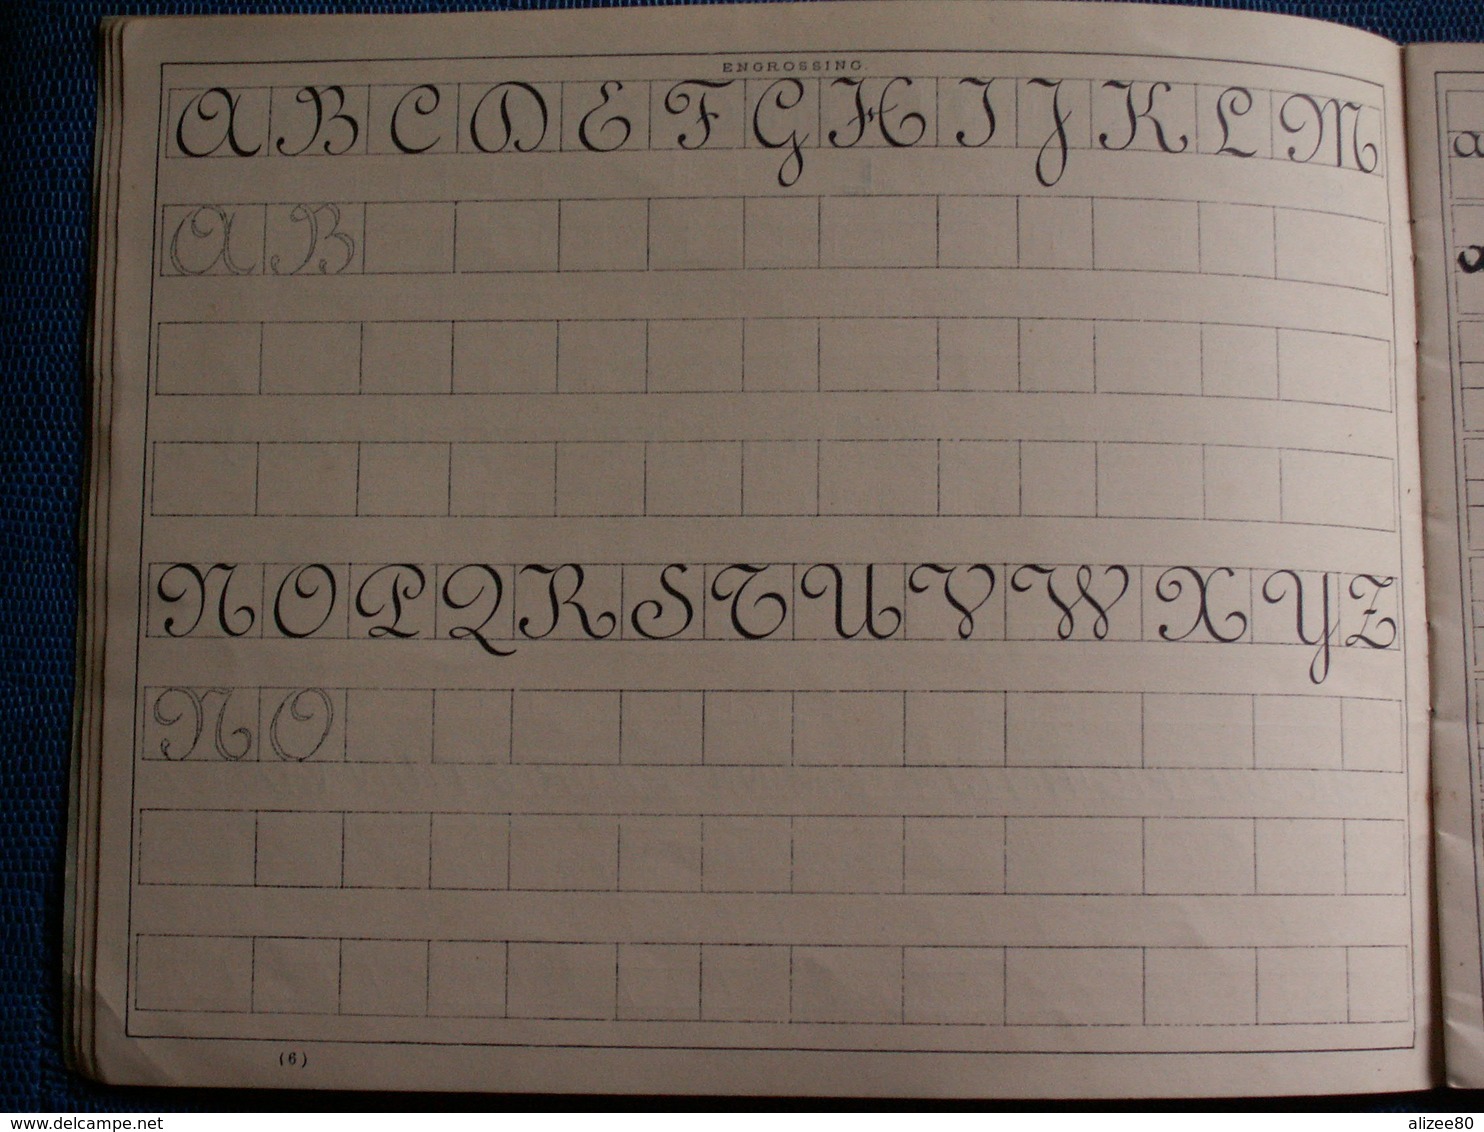 ENGROSSING.
A B C D E F G H I J K L M
A B
N O P Q R S T U V W X Y Z
N O
(6)
a
delcampe.net
alizee80